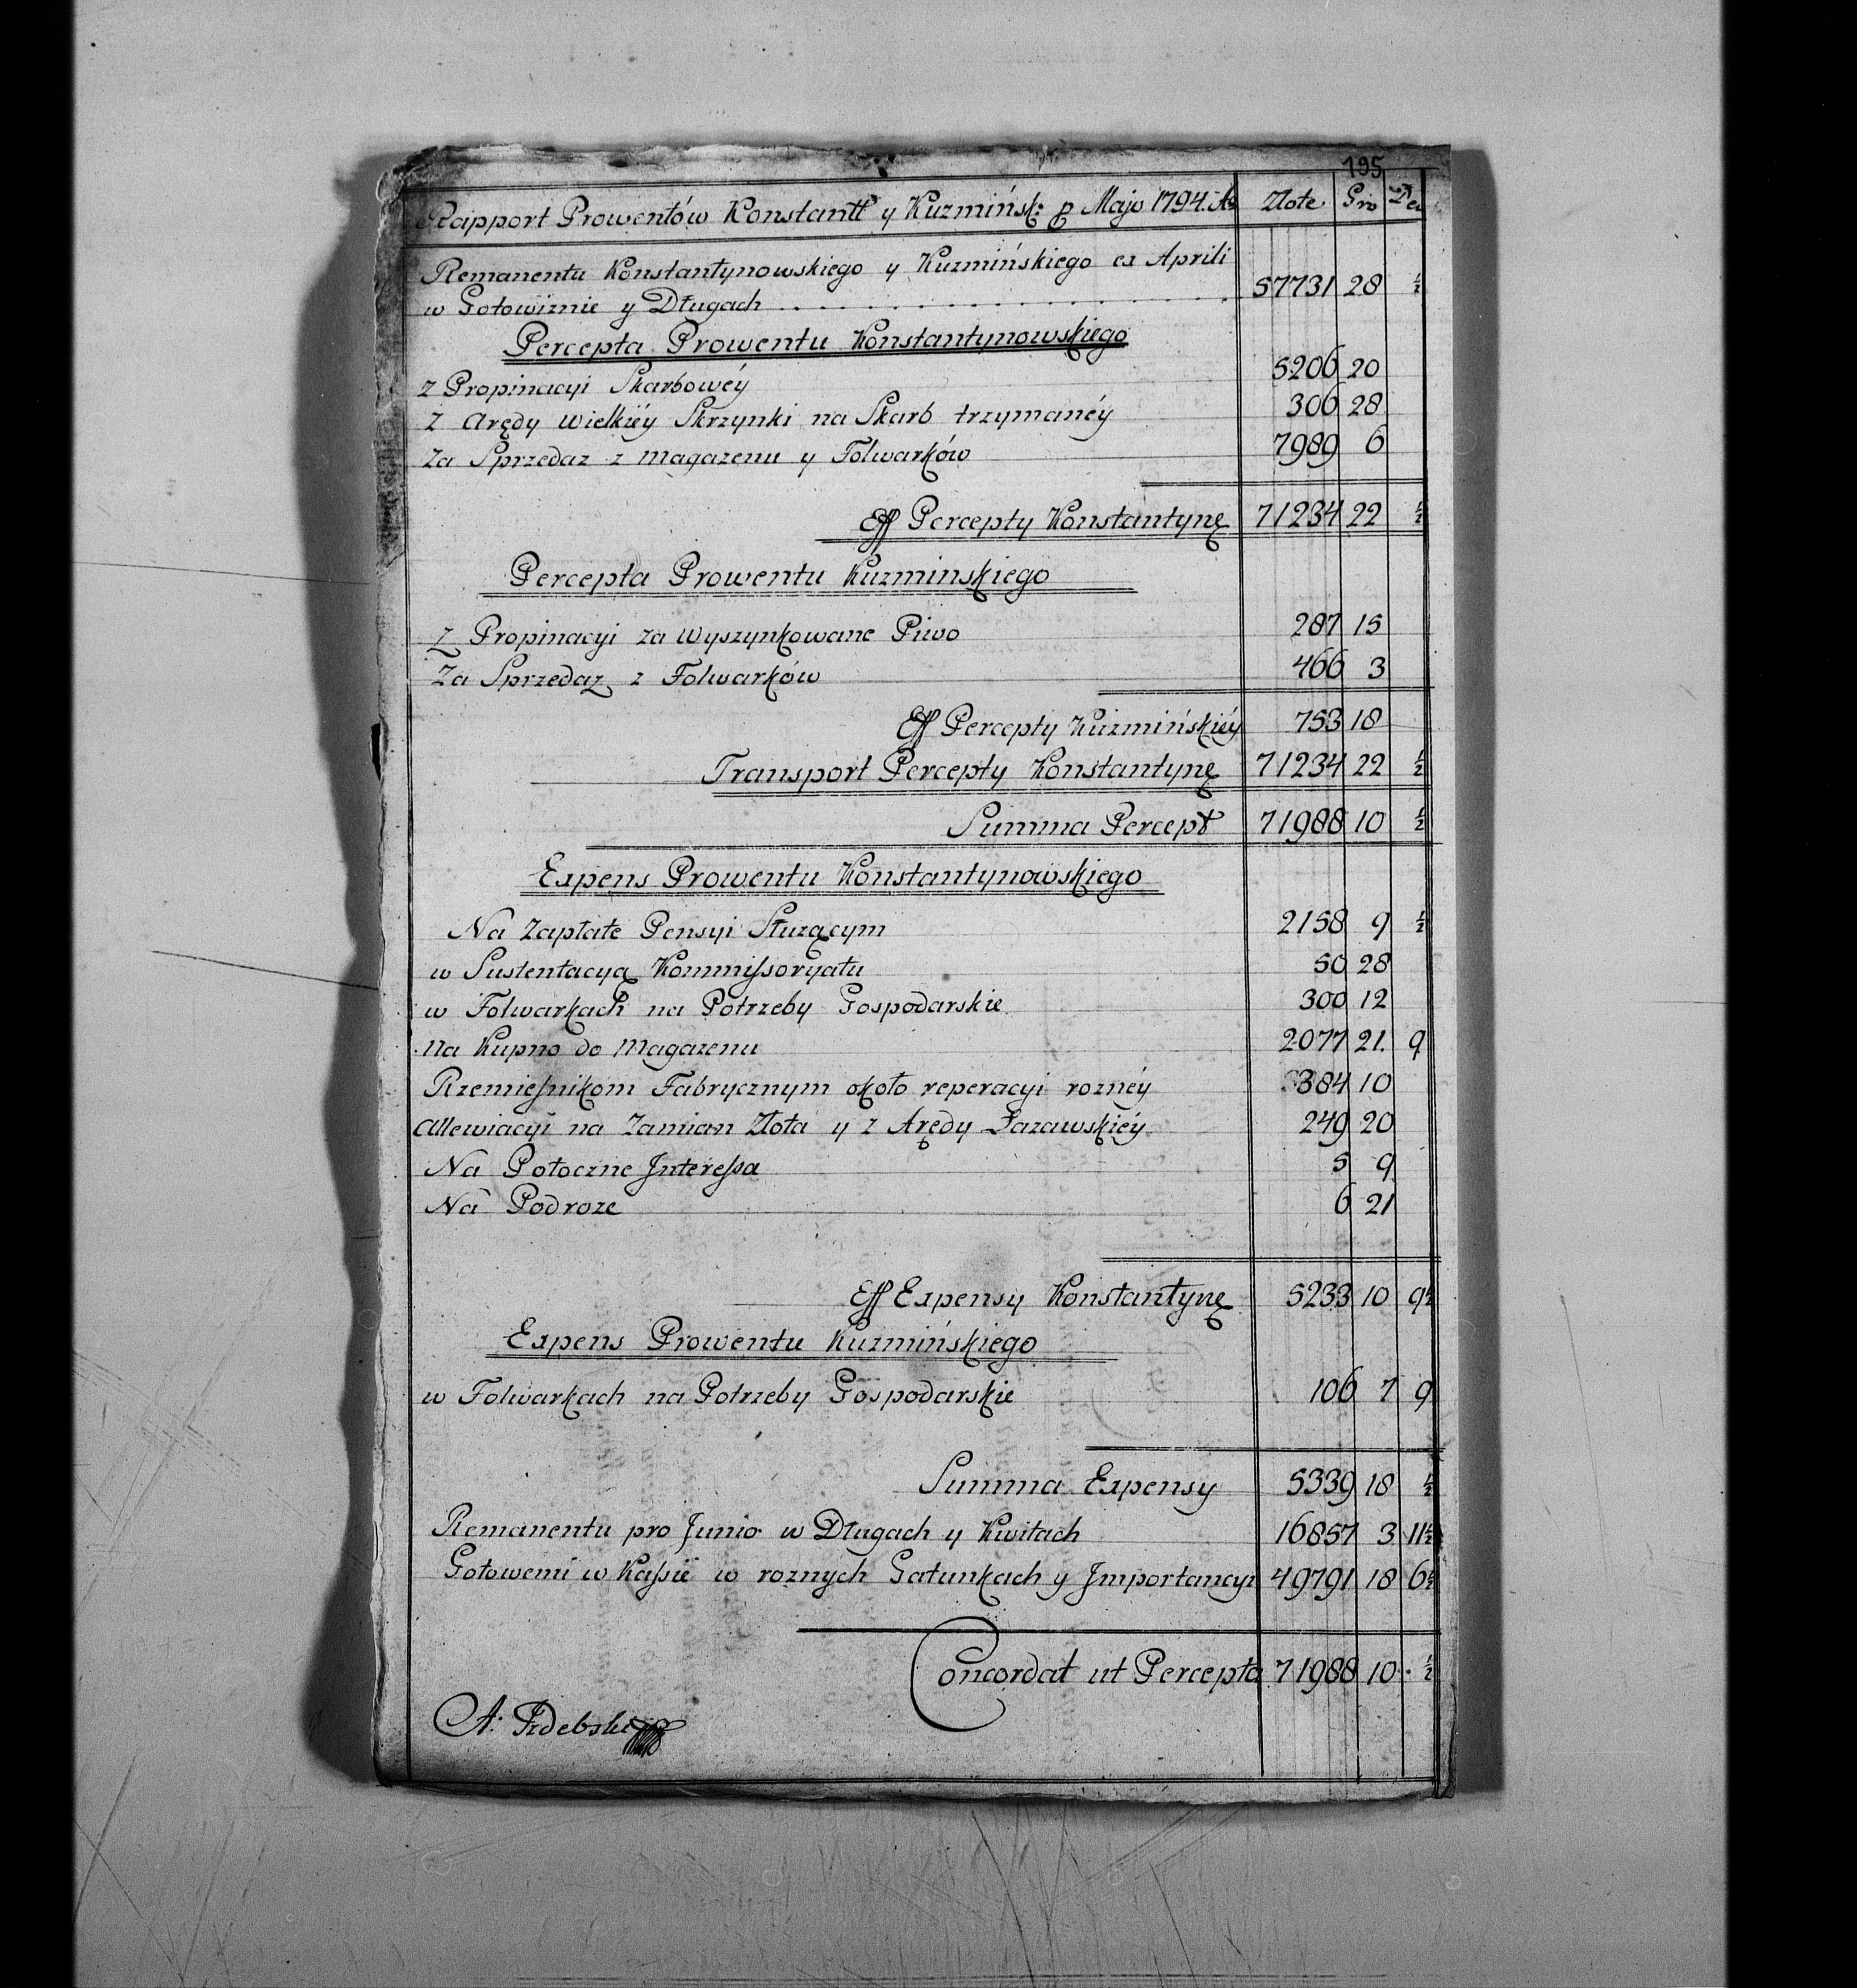 195
Rapport Prowentów Konstantt y Kuzmińsk: p Majo 1794. Ao Złote. Gro Den
Remanentu Konstantynowskiego y Kuzmińskiego ex Aprili
w Gotowiznie y Długach 57731 28 ½
Percepta Prowentu Konstantynowskiego
z Propinacyi Skarbowéy 5206 20
z Arędy Wielkiéy Skrzynki na Skarb trzymanéy 306 28
Za Sprzedaz z Magazenu y Folwarków 7989 6
Eff Percepty Konstantynę 71234 22 ½
Percepta Prowentu Kuzminskiego
z Propinacyi za Wyszynkowane Piwo 287 15
Za Sprzedaz z Folwarków 466 3
Eff Percepty Kuzmińskiéy 753 18
Transport Percepty Konstantynę 71234 22 ½
Summa Percept 71988 10 ½
Expens Prowentu Konstantynowskiego
Na Zapłate Pensyi Słuzącym 2158 9 ½
w Sustentacyą Kommissoryatu 50 28
w Folwarkach na Potrzeby Gospodarskie 300 12
Na Kupno do Magazenu 2077 21. 9
Rzemieśnikom Fabrycznym około reperacyi rozney 384 10
Allewiacyi na Zamian Złota y z Arędy Łazawskiéy 249 20
Na Potoczne Interessa 5 9
Na Podroze 6 21
Eff Expensy Konstantynę 5233 10 9½
Expens Prowentu Kuzmińskiego
w Folwarkach na Potrzeby Gospodarskie 106 7 9
Summa Expensy 5339 18 ½
Remanentu pro Junio w Długach y Kwitach 16857 3 11½
Gotowemi w Kassie w roznych Gatunkach y Importancyi 49791 18 6½
Concordat ut Percepta 71988 10 ½